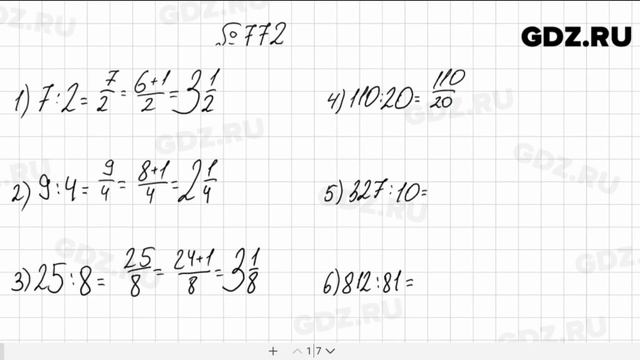 №772
GDZ.RU
1) 7:2= 7/2 = 6+1/2 = 3 1/2
2) 9:4= 9/4 = 8+1/4 = 2 1/4
3) 25:8= 25/8 = 24+1/8 = 3 1/8
4) 110:20= 110/20
5) 327:10=
6) 812:81=
1/7